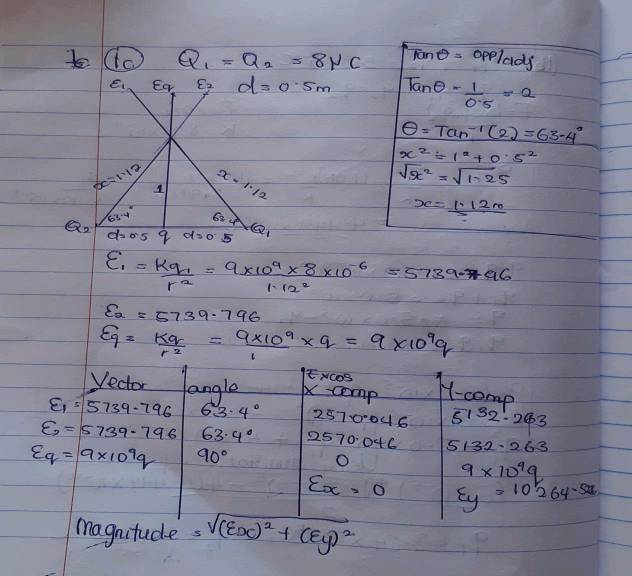 1c Q₁ = Q₂ = 8μC
E₁ Eq E₂ d = 0.5m
x = 1.12 x = 1.12
1
63.4° 63.4
Q₂ d=0.5 q d=0.5 Q₁
Tanθ = opp/adj
Tanθ = 1/0.5 = 2
θ = Tan⁻¹(2) = 63.4°
x² = 1² + 0.5²
√x² = √1.25
x = 1.12m
E₁ = Kq₁/r² = 9x10⁹ x 8x10⁻⁶/1.12² = 5739.796
E₂ = 5739.796
Eq = Kq/r² = 9x10⁹ x q/1 = 9x10⁹q
Vector angle Excos X-comp Y-comp
E₁ = 5739.796 63.4° 2570.046 5132.263
E₂ = 5739.796 63.4° 2570.046 5132.263
Eq = 9x10⁹q 90° 0 9x10⁹q
Ex = 0 Ey = 10264.5
Magnitude = √(Ex)² + (Ey)²